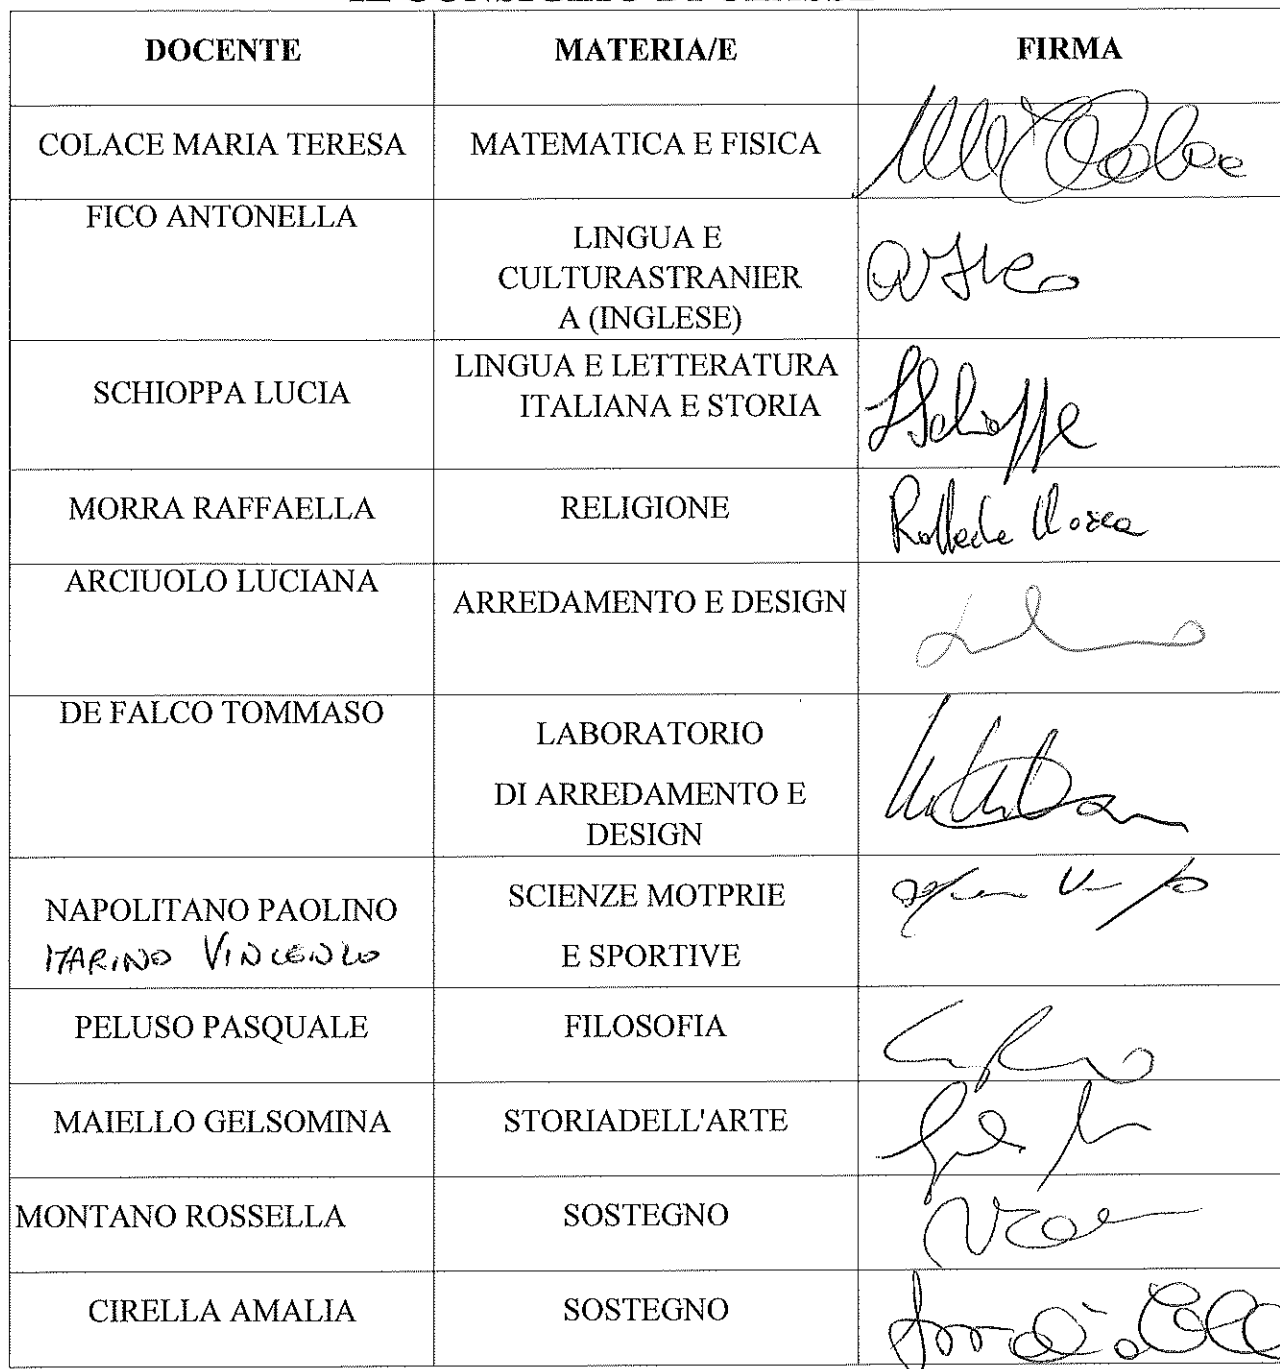 DOCENTE MATERIA/E FIRMA
COLACE MARIA TERESA MATEMATICA E FISICA
FICO ANTONELLA
LINGUA E
CULTURASTRANIER
A (INGLESE)
SCHIOPPA LUCIA
LINGUA E LETTERATURA
ITALIANA E STORIA
LSchioppa
MORRA RAFFAELLA RELIGIONE Raffaela Morra
ARCIUOLO LUCIANA
ARREDAMENTO E DESIGN
DE FALCO TOMMASO
LABORATORIO
DI ARREDAMENTO E
DESIGN
NAPOLITANO PAOLINO
MARINO VINCENZO
SCIENZE MOTPRIE
E SPORTIVE
PELUSO PASQUALE FILOSOFIA
MAIELLO GELSOMINA STORIADELL'ARTE
MONTANO ROSSELLA SOSTEGNO
CIRELLA AMALIA SOSTEGNO